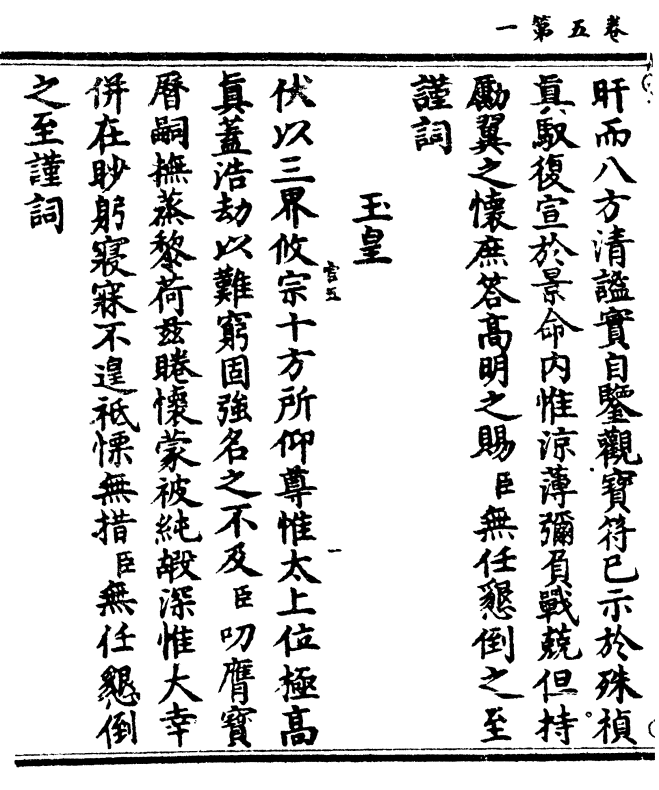 卷五第一
旰而八方清謐實自鑒觀寶符已示於殊禎
眞馭復宣於景命內惟涼薄彌負戰兢但持
勵翼之懷庶答高明之賜臣無任懇倒之至
謹詞
玉皇
伏以三界攸宗十方所仰尊惟太上位極高
眞蓋浩劫以難窮固強名之不及臣叨膺寶
曆嗣撫蒸黎荷茲睠懷蒙被純嘏深惟大幸
併在眇躬寢寐不遑祗慄無措臣無任懇倒
之至謹詞